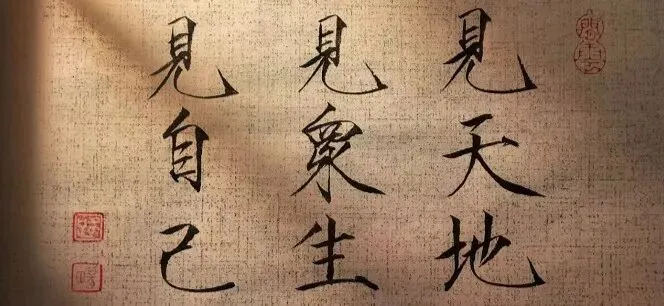 見天地
見衆生
見自己